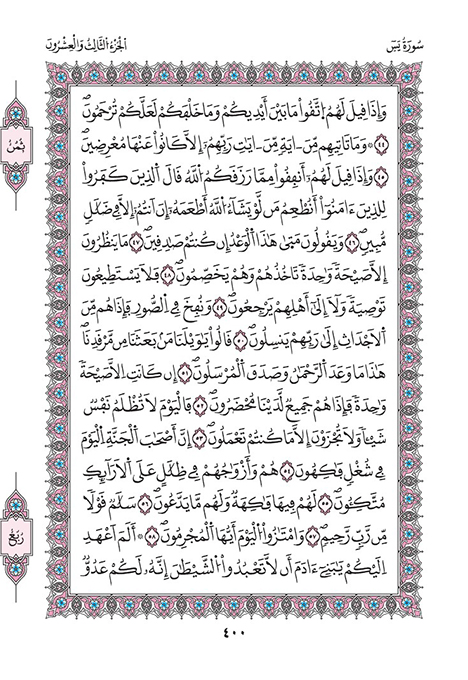 سُورَةُ يسٓ
الجُزْءُ الثَّالِثُ وَالْعِشْرُونَ
وَإِذَا قِيلَ لَهُمُ اتَّقُواْ مَا بَيْنَ أَيْدِيكُمْ وَمَا خَلْفَكُمْ لَعَلَّكُمْ تُرْحَمُونَ
ثُمُنُ
٤٤ وَمَا تَاتِيهِم مِّنَ ـ ايَةٍ مِّنَ ـ ايَٰتِ رَبِّهِمُۥٓ إِلَّا كَانُواْ عَنْهَا مُعْرِضِينَ
٤٥ وَإِذَا قِيلَ لَهُمُۥٓ أَنفِقُواْ مِمَّا رَزَقَكُمُ اللَّهُ قَالَ الَّذِينَ كَفَرُواْ
لِلَّذِينَ ءَامَنُوٓاْ أَنُطْعِمُ مَن لَّوْ يَشَآءُ اللَّهُ أَطْعَمَهُۥٓ إِنَ اَنتُمُۥٓ إِلَّا فِي ضَلَٰلٍ
مُّبِينٍ ٤٦ وَيَقُولُونَ مَتَىٰ هَٰذَا الْوَعْدُ إِن كُنتُمْ صَٰدِقِينَ ٤٧ مَا يَنظُرُونَ
إِلَّا صَيْحَةً وَٰحِدَةً تَاخُذُهُمْ وَهُمْ يَخَصِّمُونَ ٤٨ فَلَا يَسْتَطِيعُونَ
تَوْصِيَةً وَلَآ إِلَىٰٓ أَهْلِهِمْ يَرْجِعُونَ ٤٩ وَنُفِخَ فِي الصُّورِ فَإِذَا هُم مِّنَ
الَاجْدَاثِ إِلَىٰ رَبِّهِمْ يَنسِلُونَ ٥٠ قَالُواْ يَٰوَيْلَنَا مَنۢ بَعَثَنَا مِن مَّرْقَدِنَا
هَٰذَا مَا وَعَدَ الرَّحْمَٰنُ وَصَدَقَ الْمُرْسَلُونَ ٥١ إِن كَانَتِ اِلَّا صَيْحَةً
وَٰحِدَةً فَإِذَا هُمْ جَمِيعٌ لَّدَيْنَا مُحْضَرُونَ ٥٢ فَالْيَوْمَ لَا تُظْلَمُ نَفْسٌ
شَيْـًٔا وَلَا تُجْزَوْنَ إِلَّا مَا كُنتُمْ تَعْمَلُونَ ٥٣ إِنَّ أَصْحَٰبَ الْجَنَّةِ الْيَوْمَ
فِي شُغْلٍ فَٰكِهُونَ ٥٤ هُمْ وَأَزْوَٰجُهُمْ فِي ظِلَٰلٍ عَلَى الَارَآئِكِ
مُتَّكِـُٔونَ ٥٥ لَهُمْ فِيهَا فَٰكِهَةٌ وَلَهُم مَّا يَدَّعُونَ ٥٦ سَلَٰمٌ قَوْلًا
رُبُعُ
مِّن رَّبٍّ رَّحِيمٍ ٥٧ وَامْتَٰزُواْ الْيَوْمَ أَيُّهَا الْمُجْرِمُونَ ٥٨ أَلَمَ اَعْهَدِ
اِلَيْكُمْ يَٰبَنِيٓ ءَادَمَ أَن لَّا تَعْبُدُواْ الشَّيْطَٰنَ إِنَّهُۥ لَكُمْ عَدُوٌّ
٤٠٠